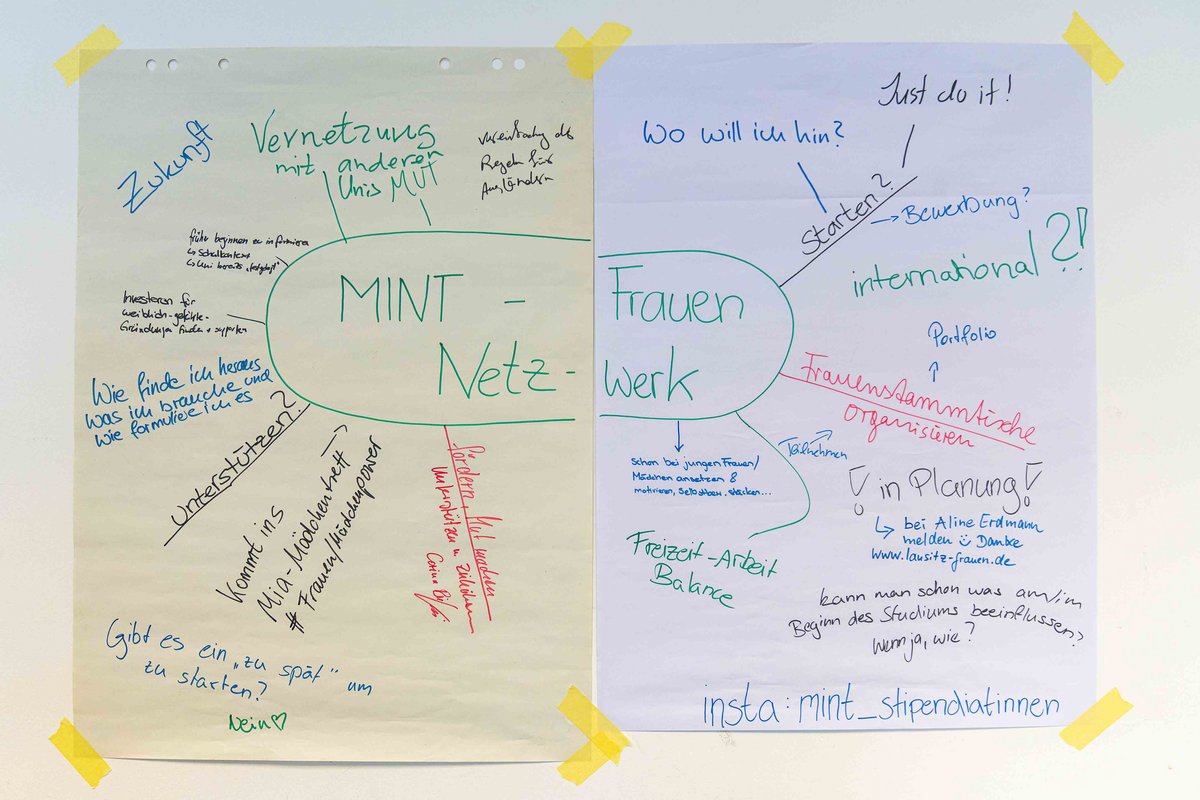 Zukunft
Vernetzung
mit anderen
Unis MUT
Regeln für
Ausländern
früher beginnen zu informieren
↳ Schulkontext
↳ Uni bereits „festgelegt“
Investoren für
weiblich-geführte-
Gründungen finden + supporten
MINT -
Netz-
Wie finde ich heraus
was ich brauche und
wie formuliere ich es
Unterstützen?
Kommt ins
Mia-Mädchentreff
# Frauen/Mädchenpower
fördern, Mut machen
unterstützen u. zuhören
Gibt es ein „zu spät“ um
zu starten?
Nein ♡
Just do it!
Wo will ich hin?
Starten?
→ Bewerbung?
international?!
Frauen
werk
Portfolio
Frauenstammtische
organisieren
Teilnehmen
schon bei jungen Frauen/
Mädchen ansetzen &
motivieren, Selbstbew. stärken...
! in Planung!
↳ bei Aline Erdmann
melden ☺ Danke
www.lausitz-frauen.de
Freizeit-Arbeit
Balance
kann man schon was am/im
Beginn des Studiums beeinflussen?
Wenn ja, wie?
insta: mint_stipendiatinnen